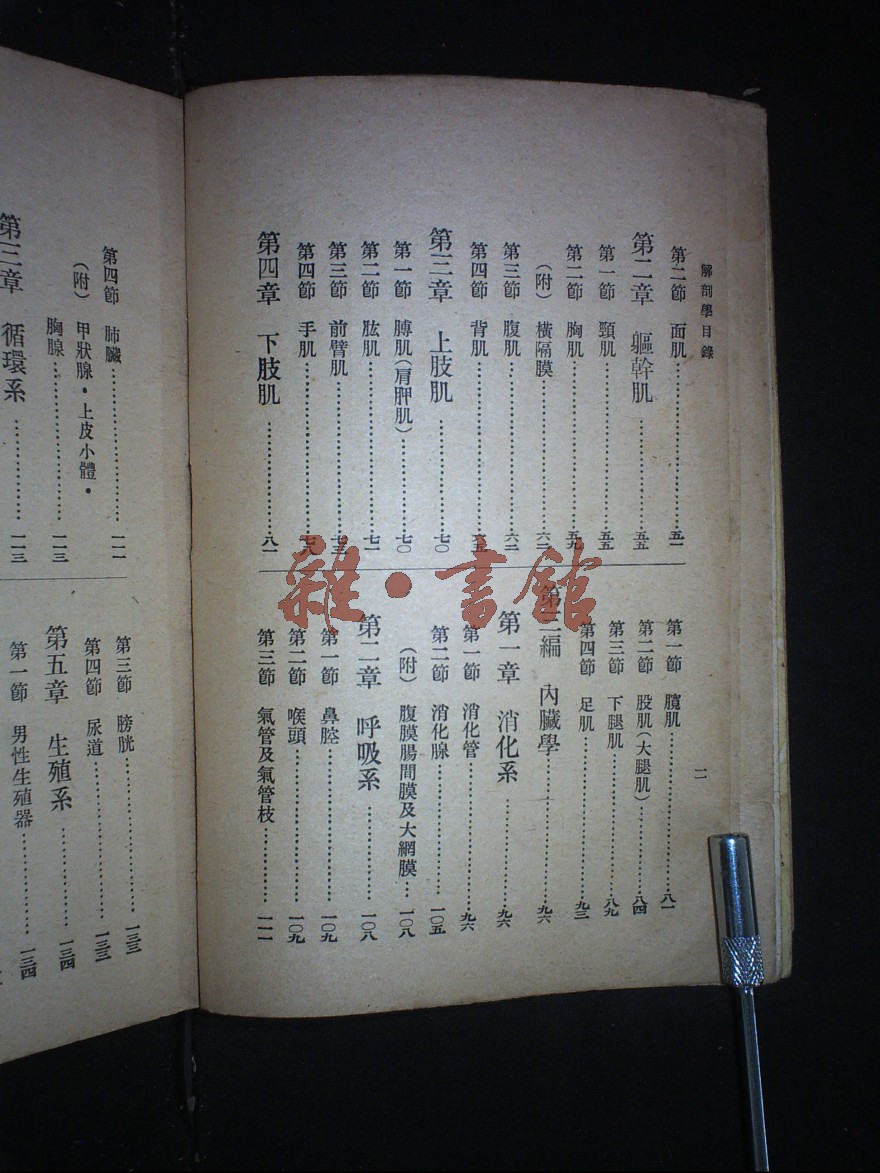 解剖學目錄
二
第二節 面肌……五一
第二章 軀幹肌……五五
第一節 頸肌……五五
第二節 胸肌……五九
(附) 橫隔膜……六二
第三節 腹肌……六二
第四節 背肌……六五
第三章 上肢肌……七〇
第一節 膊肌(肩胛肌)……七〇
第二節 肱肌……七一
第三節 前臂肌……七三
第四節 手肌……七八
第四章 下肢肌……八一
第一節 臗肌……八一
第二節 股肌(大腿肌)……八四
第三節 下腿肌……八九
第四節 足肌……九三
第三編 內臟學……九六
第一章 消化系……九六
第一節 消化管……九六
第二節 消化腺……一〇五
(附) 腹膜腸間膜及大網膜……一〇八
第二章 呼吸系……一〇八
第一節 鼻腔……一〇九
第二節 喉頭……一〇九
第三節 氣管及氣管枝……一一一
第四節 肺臟……一一一
(附) 甲狀腺·上皮小體·
胸腺……一一三
第三章 循環系……一一三
第三節 膀胱……一三三
第四節 尿道……一三三
第五章 生殖系……一三四
第一節 男性生殖器……一三四
雜·書館